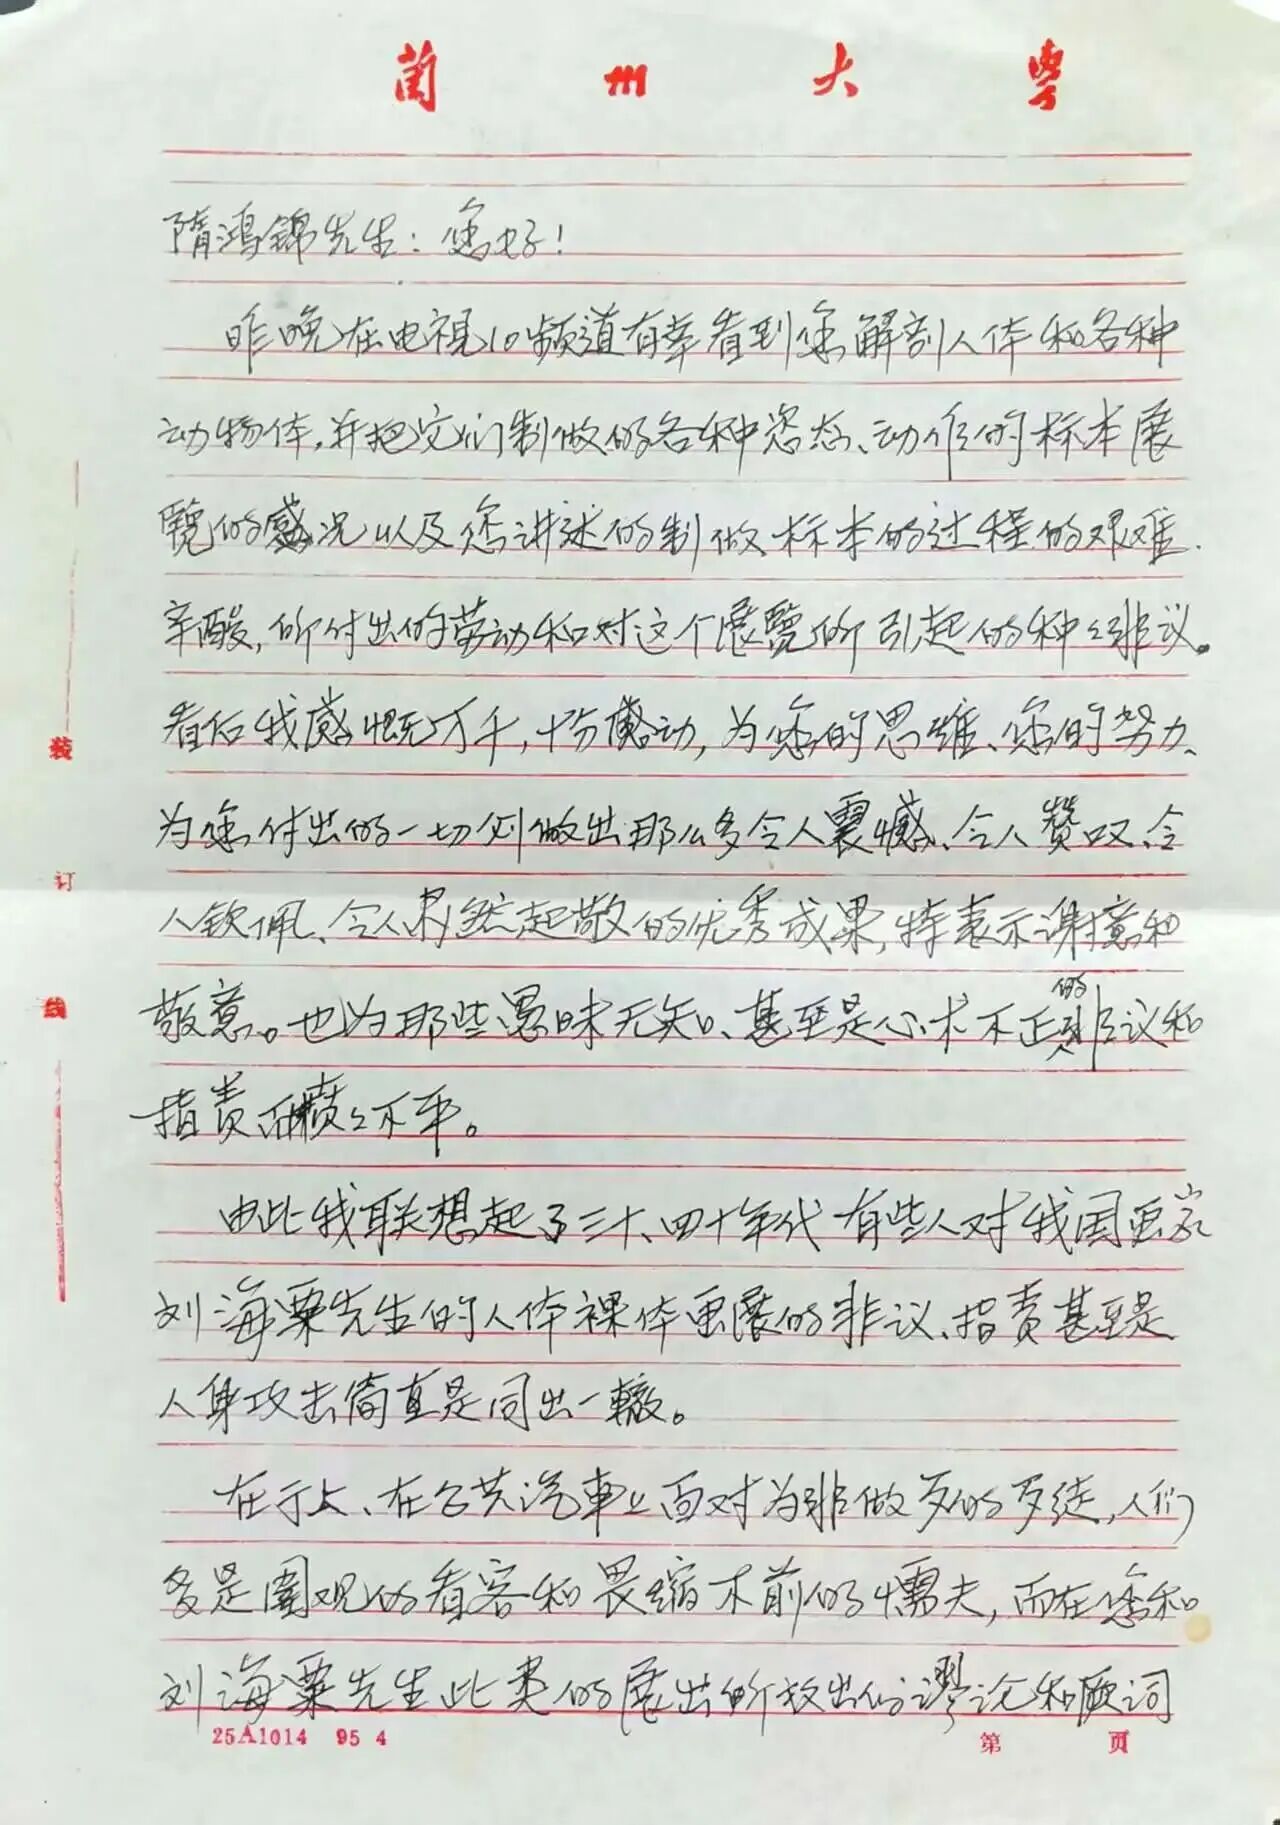 蘭州大學
隋鸿锦先生：您好！
昨晚在电视10频道有幸看到您解剖人体和各种
动物体，并把它们制做的各种姿态、动作的标本展
览的盛况以及您讲述的制做标本的过程的艰难、
辛酸，所付出的劳动和对这个展览所引起的种々非议。
看后我感慨万千，十分感动，为您的思维、您的努力、
为您付出的一切例做出那么多令人震憾、令人赞叹、令
人钦佩、令人肃然起敬的优秀成果，特表示谢意和
敬意。也为那些愚昧无知、甚至是心术不正的非议和
指责而愤々不平。
由此我联想起了三十、四十年代有些人对我国画家
刘海粟先生的人体裸体画展的非议、指责甚至是
人身攻击简直是同出一辙。
在于上、在公共汽车上面对为非做歹的歹徒，人们
多是围观的看客和畏缩不前的懦夫，而在您和
刘海粟先生此类的展出所放出的谬论和厥词
装
订
线
25A1014 95 4
第 页